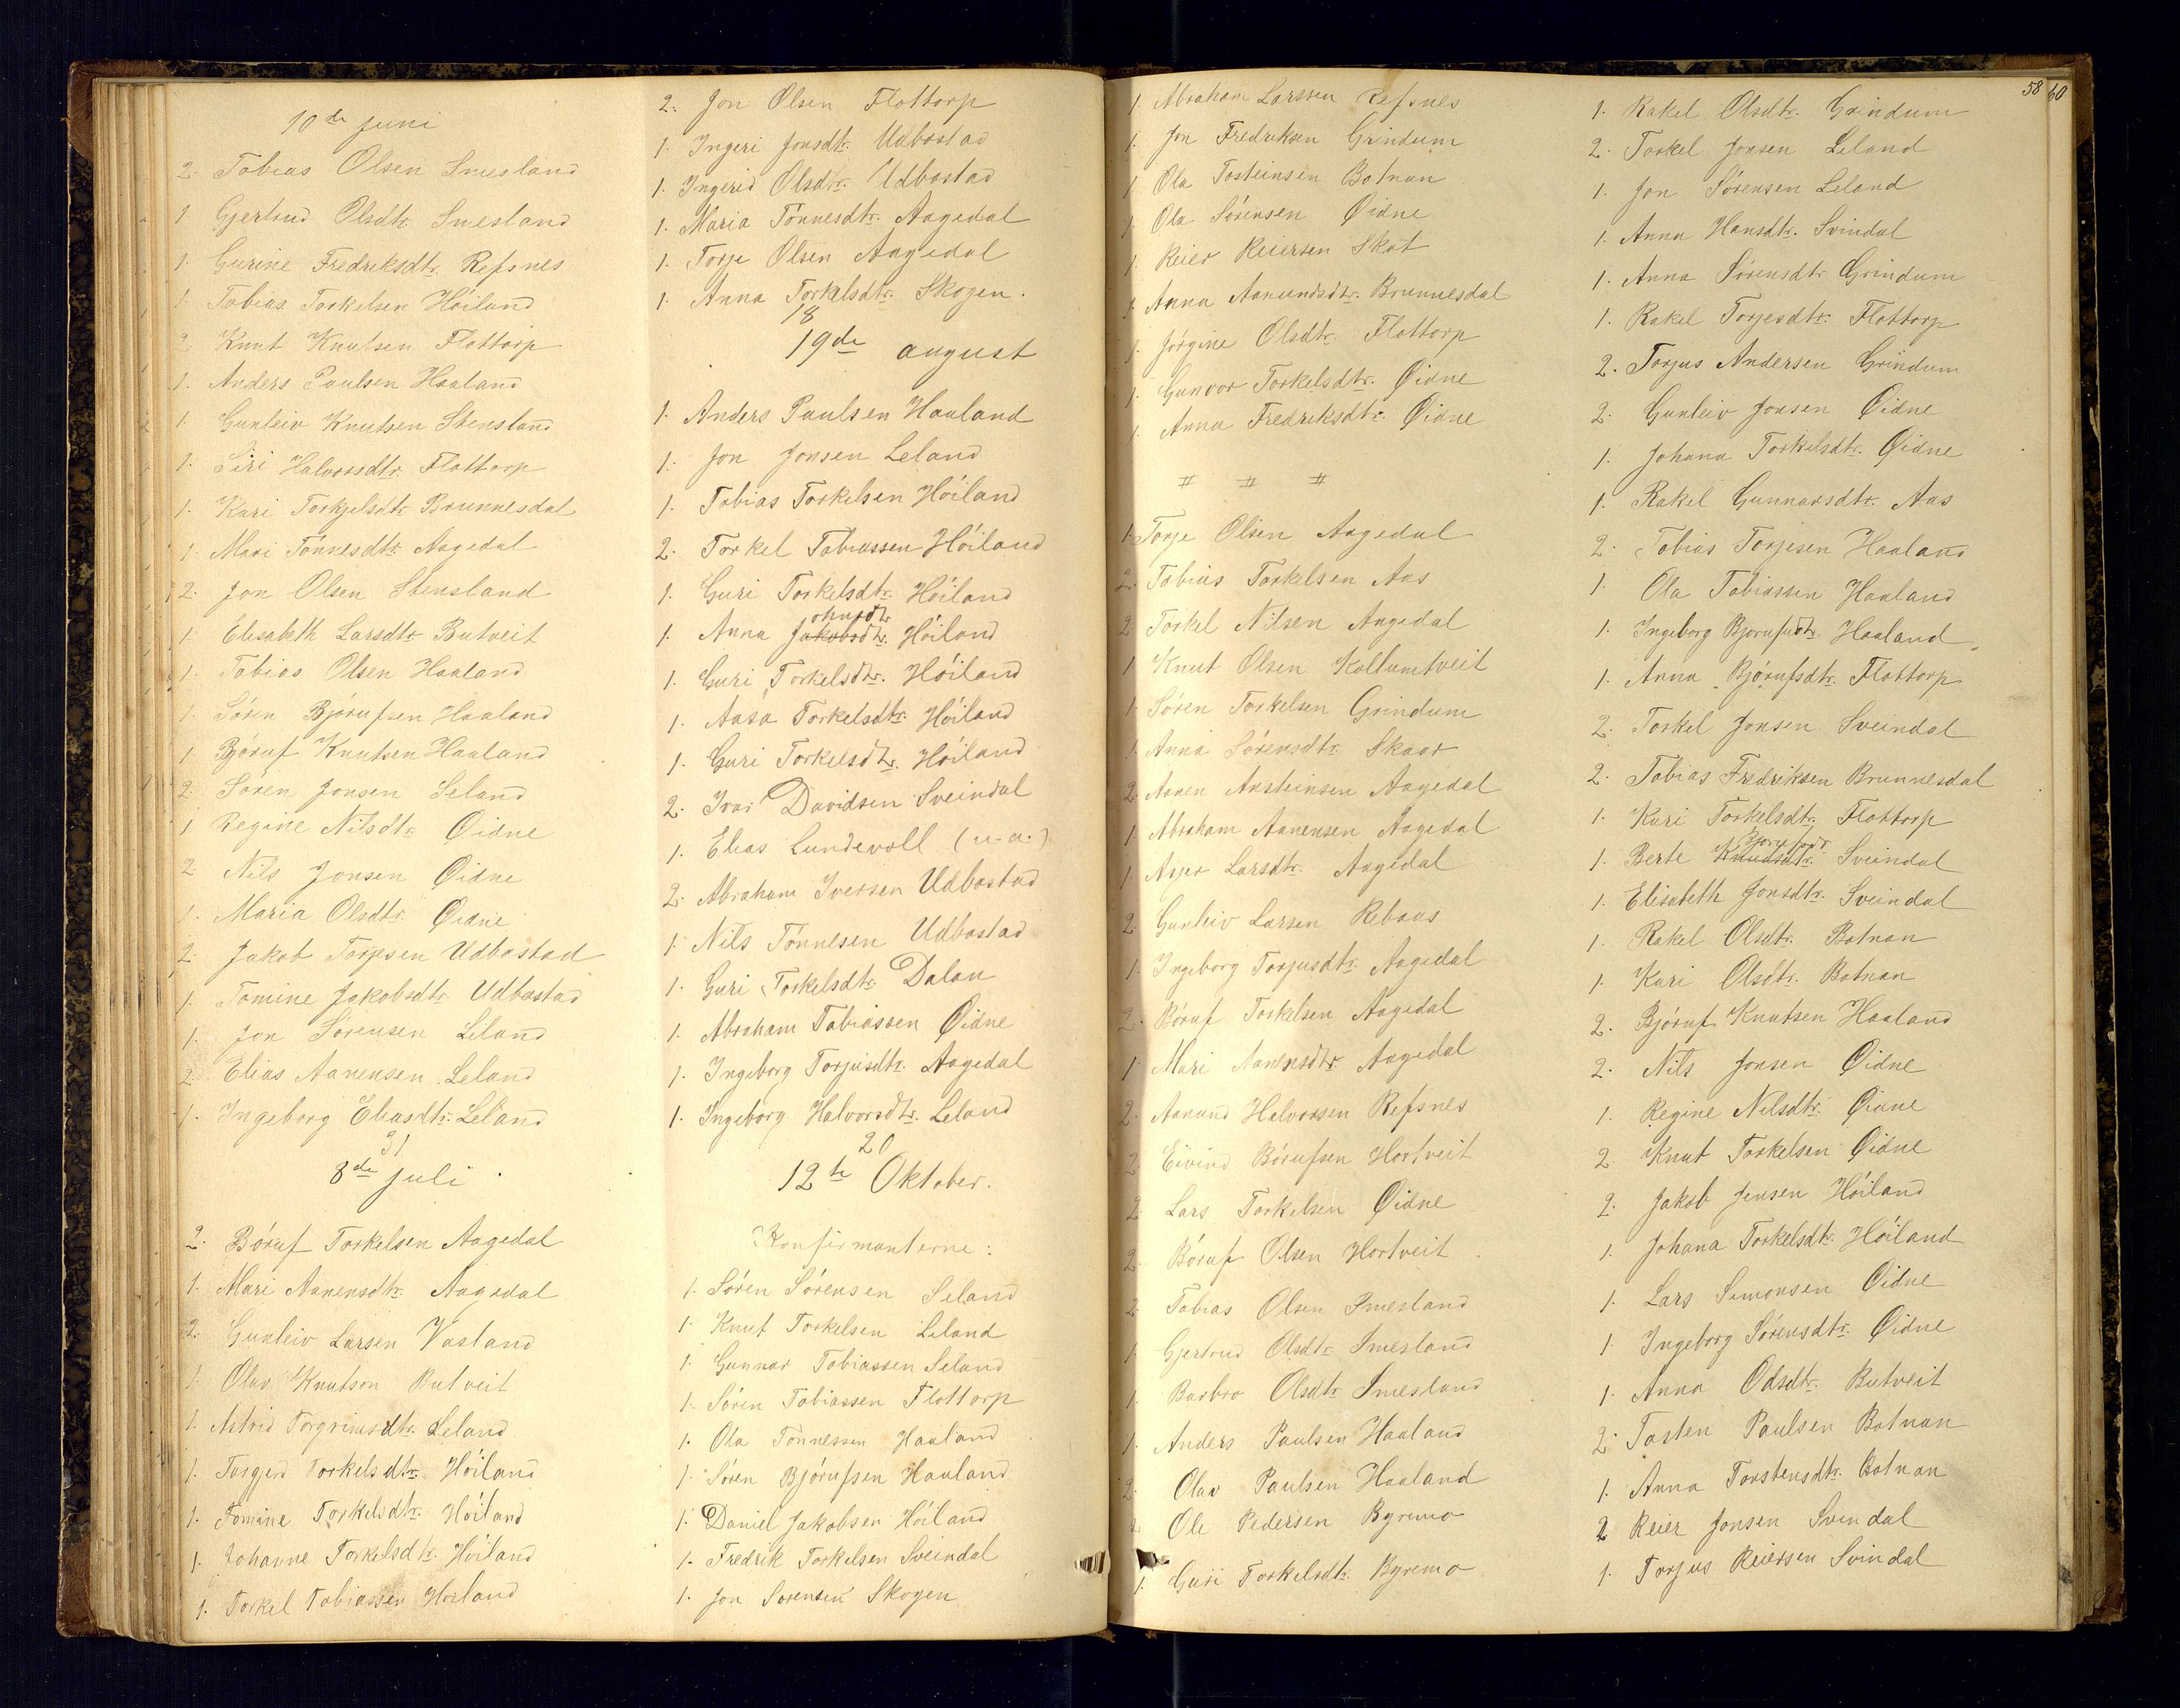 10de juni
2. Tobias Olsen Smesland
1. Gjertrud Olsdtr. Smesland
1. Gurine Fredriksdtr. Refsnes
1. Tobias Torkelsen Höiland
2. Knut Knutsen Flottorp
1. Anders Paulsen Haaland
1. Gunleiv Knutsen Stensland
1. Siri Halvorsdtr. Flottorp
1. Kari Torkjelsdtr. Brunnesdal
1. Mari Tönnesdtr. Aagedal
2. Jon Olsen Stensland
1. Elisabeth Larsdtr. Butveit
1. Tobias Olsen Haaland
1. Sören Björufsen Haaland
1. Björuf Knutsen Haaland
2. Sören Jonsen Leland
1. Regine Nilsdtr. Øidne
2. Nils Jonsen Øidne
1. Maria Olsdtr. Øidne
2. Jakob Torjesen Udbostad
1. Tomine Jakobsdtr. Udbostad
1. Jon Sörensen Leland
2. Elias Aanensen Leland
1. Ingeborg Eliasdtr. Leland
31
8de juli
2. Böruf Torkelsen Aagedal
1. Mari Aanensdtr. Aagedal
2. Gunleiv Larsen Vasland
1. Olav Knutson Butveit
1. Astrid Torgrimsdtr. Leland
1. Torgerd Torkelsdtr. Höiland
1. Tomine Torkelsdtr. Höiland
1. Johanne Torkelsdtr. Höiland
1. Torkel Tobiassen Höiland
2. Jon Olsen Flottorp
1. Ingeri Jonsdtr. Udbostad
1. Ingerid Olsdtr. Udbostad
1. Maria Tönnesdtr. Aagedal
1. Torje Olsen Aagedal
1. Anna Torkelsdtr. Skogen.
18
19de august
1. Anders Paulsen Haaland
1. Jon Jonsen Leland
1. Tobias Torkelsen Höiland
2. Torkel Tobiassen Höiland
1. Guri Torkelsdtr. Höiland
ohnsdtr
1. Anna Jakobsdtr. Höiland
1. Guri Torkelsdtr. Höiland
1. Aasa Torkelsdtr. Höiland
1. Guri Torkelsdtr. Höiland
2. Ivar Davidsen Sveindal
1. Elias Lundevoll (u.a.)
2. Abraham Iversen Udbostad
1. Nils Tönnesen Udbostad
1. Guri Torkelsdtr. Dalan
1. Abraham Tobiassen Øidne
1. Ingeborg Torjusdtr. Aagedal
1. Ingeborg Halvorsdtr. Leland
20
12te Oktober.
Konfirmanterne:
1. Sören Sörensen Leland
1. Knut Torkelsen Leland
1. Gunnar Tobiassen Leland
1. Sören Tobiassen Flottorp
1. Ola Tönnessen Haaland
1. Sören Björufsen Haaland
1. Daniel Jakobsen Höiland
1. Fredrik Torkelsen Sveindal
1. Jon Sörensen Skogen
1. Abraham Larssen Refsnes
1. Jon Fredriksen Grindum
1. Ola Tosteinsen Botnan
1. Ola Sörensen Øidne
1. Reier Reiersen Skot
1. Anna Aanundsdtr. Brunnesdal
1. Jörgine Olsdtr. Flottorp
1. Gunvor Torkelsdtr. Øidne
1. Anna Fredriksdtr. Øidne
# # #
1. Torje Olsen Aagedal
2. Tobias Torkelsen Aas
2. Torkel Nilsen Aagedal
1. Knut Olsen Kollumtveit
1. Sören Torkelsen Grindum
1. Anna Sörensdtr. Skaar
2. Aanen Ansteinsen Aagedal
1. Abraham Aanensen Aagedal
1. Asjer Larsdtr. Aagedal
2. Gunleiv Larsen Rebaas
1. Ingeborg Torjusdtr. Aagedal
2. Böruf Torkelsen Aagedal
1. Mari Aanensdtr. Aagedal
2. Aanund Halvorsen Refsnes
2. Eivind Börufsen Hortveit
2. Lars Torkelsen Øidne
2. Böruf Olsen Hortveit
2. Tobias Olsen Smesland
1. Gjertrud Olsdtr. Smesland
1. Barbro Olsdtr. Smesland
1. Anders Paulsen Haaland
2. Olav Paulsen Haaland
2. Ole Pedersen Byremo
1. Guri Torkelsdtr. Byremo
58 60
1. Rakel Olsdtr. Grindum
2. Torkel Jonsen Leland
1. Jon Sörensen Leland
1. Anna Hansdtr. Svindal
1. Anna Sörensdtr. Grindum
1. Rakel Torjesdtr. Flottorp
2. Torjus Andersen Grindum
2. Gunleiv Jonsen Øidne
1. Johana Torkelsdtr. Øidne
1. Rakel Gunnarsdtr. Aas
2. Tobias Torjesen Haaland
1. Ola Tobiassen Haaland
1. Ingeborg Bjorufsdtr. Haaland
1. Anna Björufsdtr. Flottorp
2. Torkel Jonsen Sveindal
2. Tobias Fredriksen Brunnesdal
1. Kari Torkelsdtr. Flottorp
Bjorufsdtr
1. Berte Knudsdtr. Sveindal
1. Elisabeth Jonsdtr. Sveindal
1. Rakel Olsdtr. Botnan
1. Kari Olsdtr. Botnan
2. Björuf Knutsen Haaland
2. Nils Jonsen Øidne
1. Regine Nilsdtr. Øidne
2. Knut Torkelsen Øidne
2. Jakob Jensen Höiland
1. Johana Torkelsdtr. Höiland
1. Lars Simonsen Øidne
1. Ingeborg Sörensdtr. Øidne
1. Anna Odsdtr. Butveit
2. Tosten Paulsen Botnan
1. Anna Torstensdtr. Botnan
2 Reier Jonsen Svendal
1. Torjus Reiersen Svindal